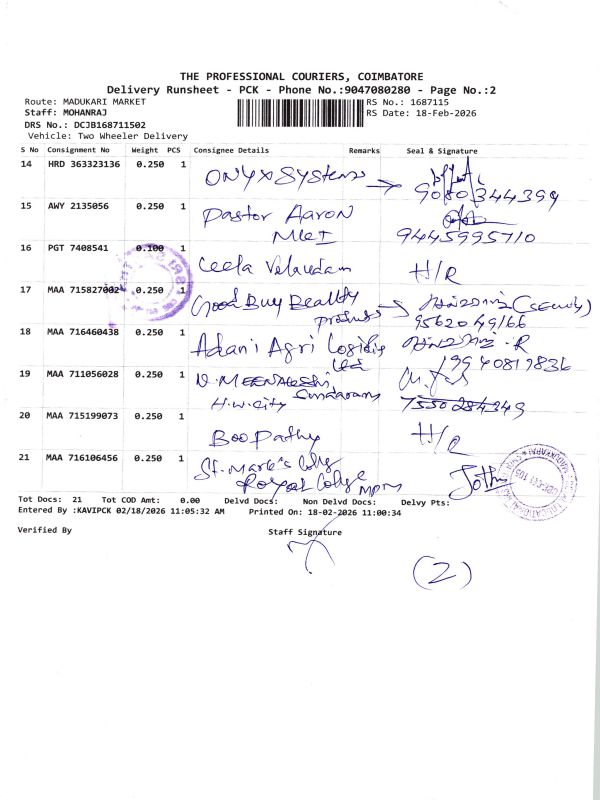 THE PROFESSIONAL COURIERS, COIMBATORE
Delivery Runsheet - PCK - Phone No.:9047080280 - Page No.:2
Route: MADUKARI MARKET
RS No.: 1687115
Staff: MOHANRAJ
RS Date: 18-Feb-2026
DRS No.: DCJB168711502
Vehicle: Two Wheeler Delivery
S No Consignment No Weight PCS Consignee Details Remarks Seal & Signature
14 HRD 363323136 0.250 1 ONYX Systems
9080344399
15 AWY 2135056 0.250 1 Pastor Aaron
9445995710
16 PGT 7408541 0.100 1
H/R
17 MAA 715827002 0.250 1 Good Buy Beauty
products
9562049166
18 MAA 716460438 0.250 1 Adani Agri Logistics
Ltd 9940819836
19 MAA 711056028 0.250 1 V. MEENAKSHI
H.W.City Sundaram 7550284349
20 MAA 715199073 0.250 1 Boopathy H/R
21 MAA 716106456 0.250 1 St. Mark's
Royal College MPM
Tot Docs: 21 Tot COD Amt: 0.00 Delvd Docs: Non Delvd Docs: Delvy Pts:
Entered By :KAVIPCK 02/18/2026 11:05:32 AM Printed On: 18-02-2026 11:00:34
Verified By Staff Signature
(2)